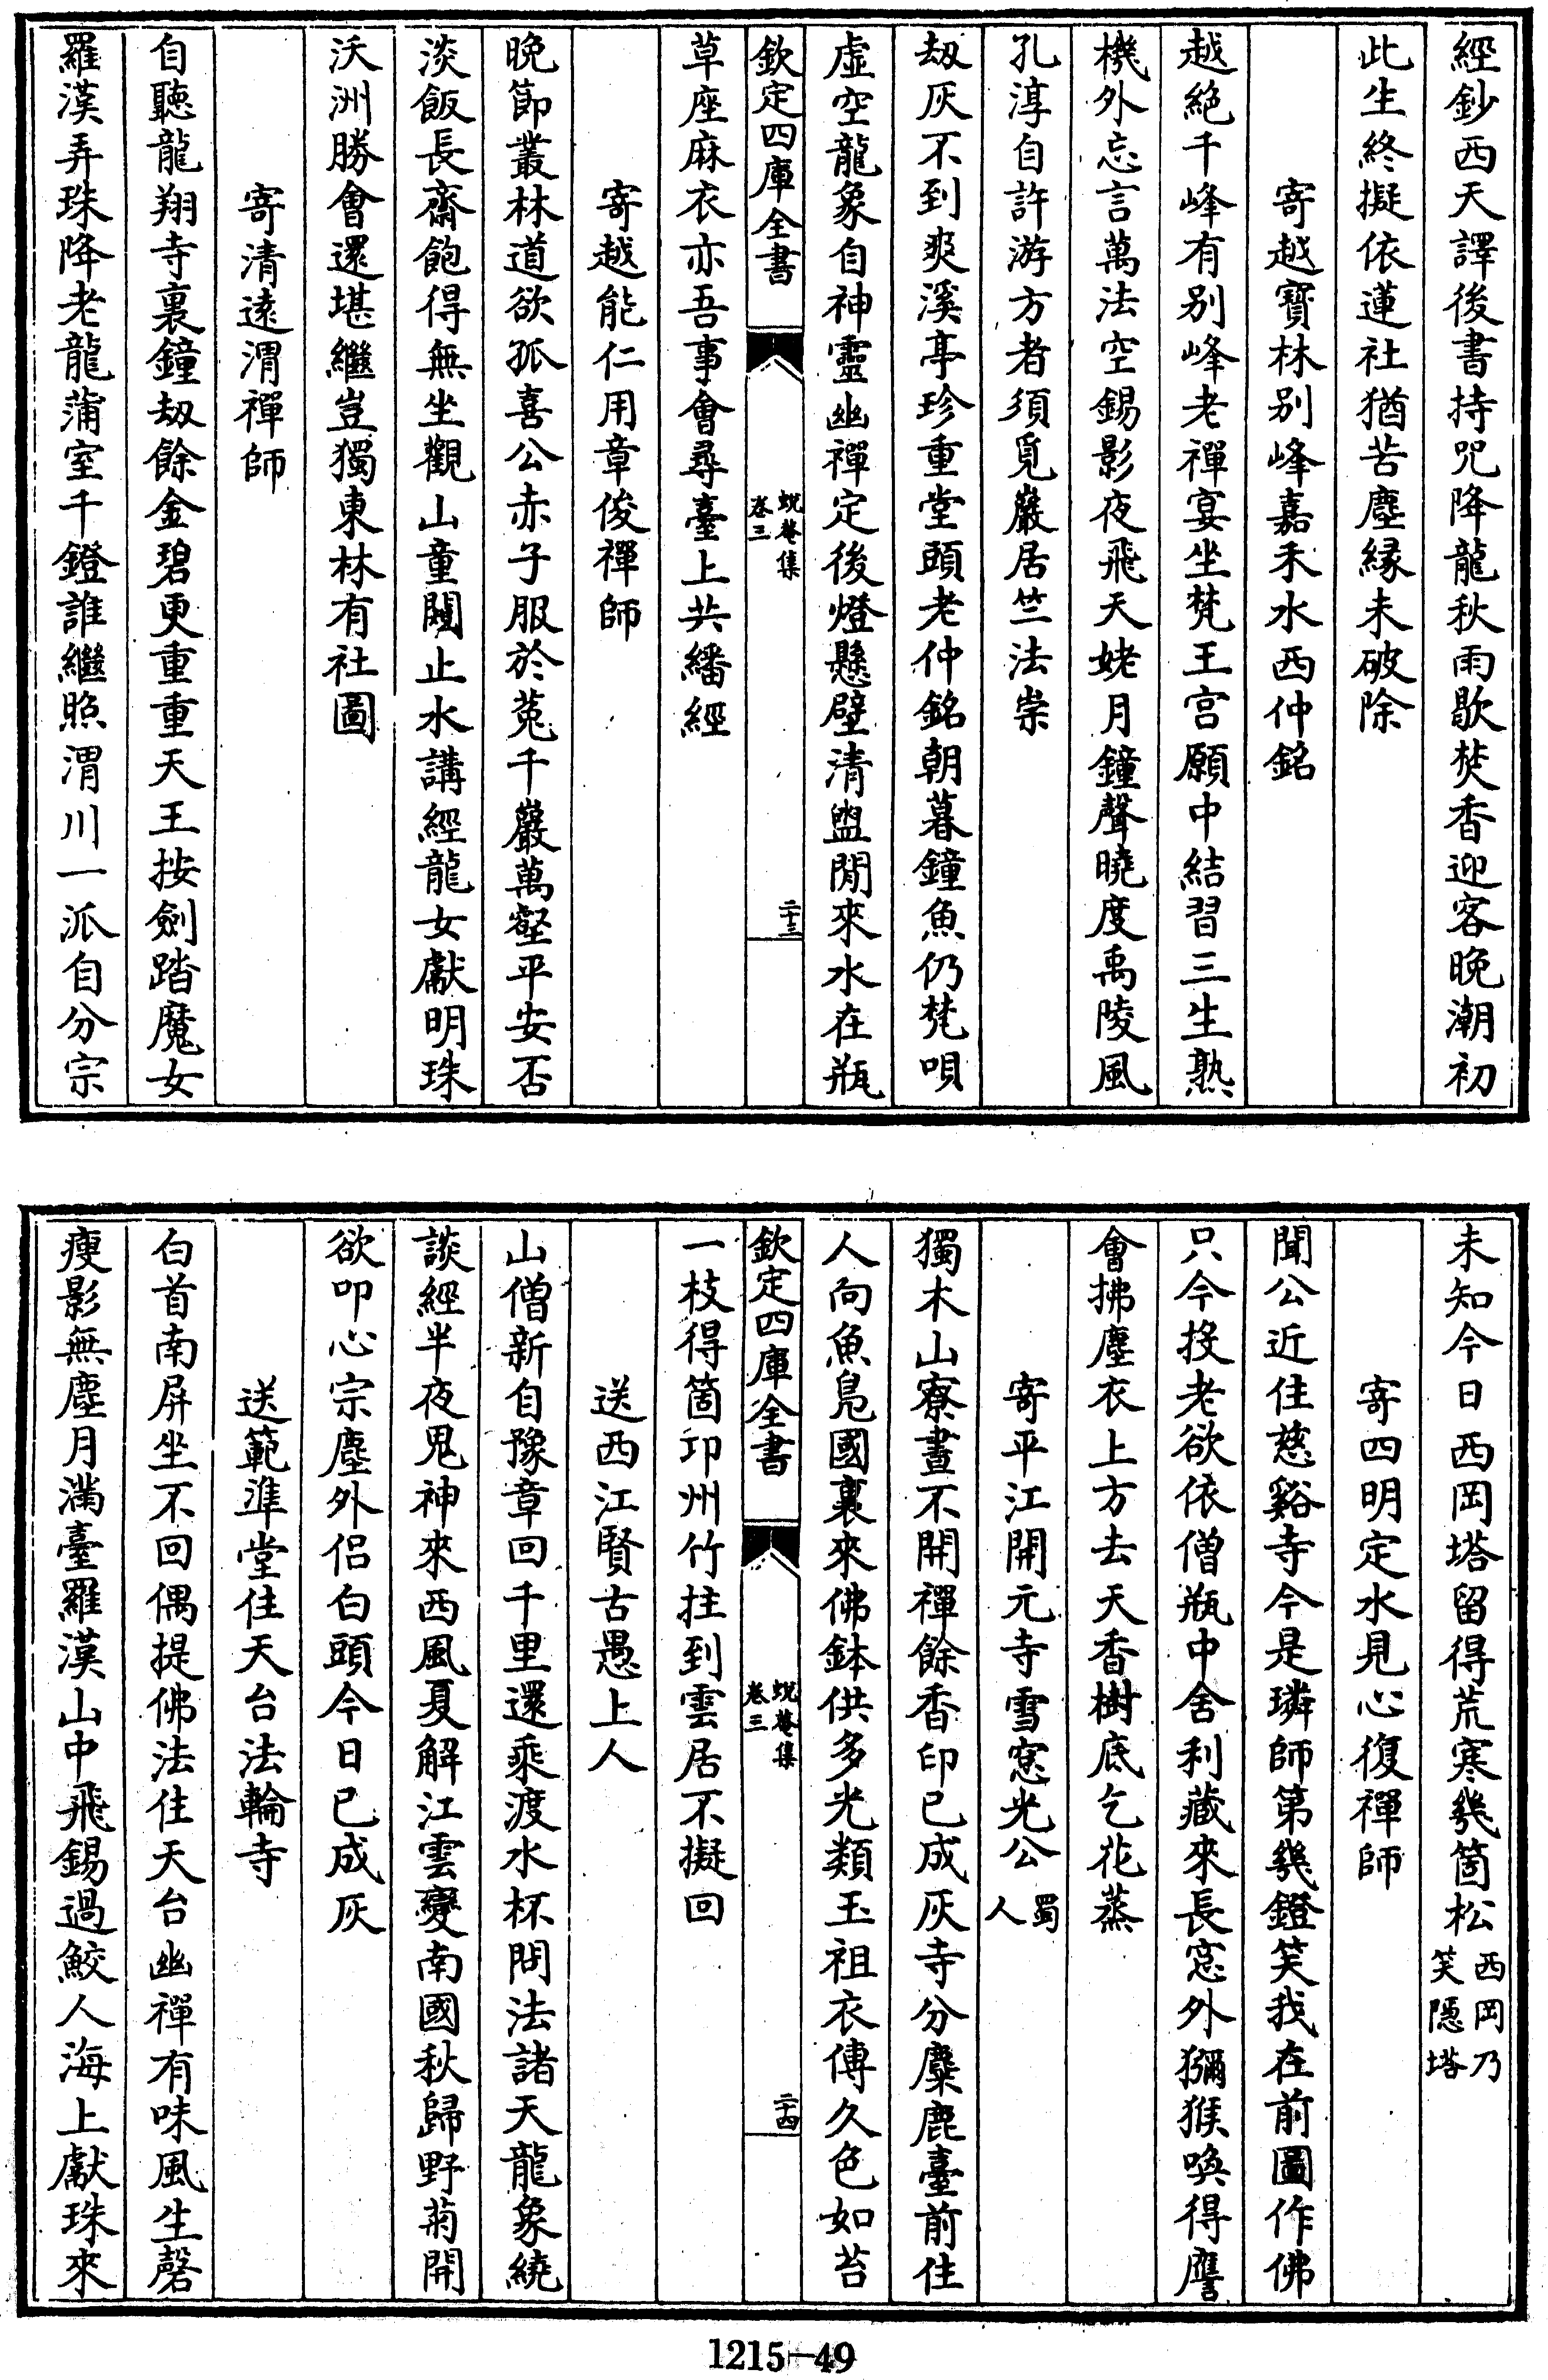 經鈔西天譯後書持咒降龍秋雨歇焚香迎客晚潮初
此生終擬依蓮社猶苦塵縁未破除
寄越寶林别峰嘉禾水西仲銘
越絶千峰有别峰老禪宴坐梵王宫願中結習三生熟
機外忘言萬法空錫影夜飛天姥月鐘聲曉度禹陵風
孔淳自許游方者須覓巖居竺法崇
刼灰不到爽溪亭珍重堂頭老仲銘朝暮鐘魚仍梵唄
虚空龍象自神靈幽禪定後燈懸壁清盥閒來水在瓶
欽定四庫全書
蛻菴集
卷三
二十三
草座麻衣亦吾事會尋臺上共繙經
寄越能仁用章俊禪師
晚節叢林道欲孤喜公赤子服於菟千巖萬壑平安否
淡飯長齋飽得無坐觀山童闚止水講經龍女獻明珠
沃洲勝會還堪繼豈獨東林有社圖
寄清遠渭禪師
自聽龍翔寺裏鐘刼餘金碧更重重天王按劍踏魔女
羅漢弄珠降老龍蒲室千鐙誰繼照渭川一派自分宗
未知今日西岡塔留得荒寒幾箇松西岡乃
笑隱塔
寄四明定水見心復禪師
聞公近住慈谿寺今是璘師第幾鐙笑我在前圖作佛
只今投老欲依僧瓶中舍利藏來長窓外獼猴喚得譍
會拂塵衣上方去天香樹底乞花蒸
寄平江開元寺雪窓光公蜀
人
獨木山寮晝不開禪餘香印已成灰寺分麋鹿臺前住
人向魚鳬國裏來佛鉢供多光類玉祖衣傳久色如苔
欽定四庫全書
蛻菴集
卷三
二十四
一枝得箇卭州竹拄到雲居不擬回
送西江賢古愚上人
山僧新自豫章回千里還乘渡水杯問法諸天龍象繞
談經半夜鬼神來西風夏解江雲變南國秋歸野菊開
欲叩心宗塵外侣白頭今日已成灰
送範準堂住天台法輪寺
白首南屏坐不回偶提佛法住天台幽禪有味風生磬
瘦影無塵月滿臺羅漢山中飛錫過鮫人海上獻珠來
1215-49